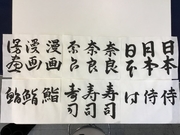 日本
日本
日本
奈良
奈良
奈良
漫画
漫画
漫画
侍
侍
寿司
寿司
寿司
鮨
鮨
鮨